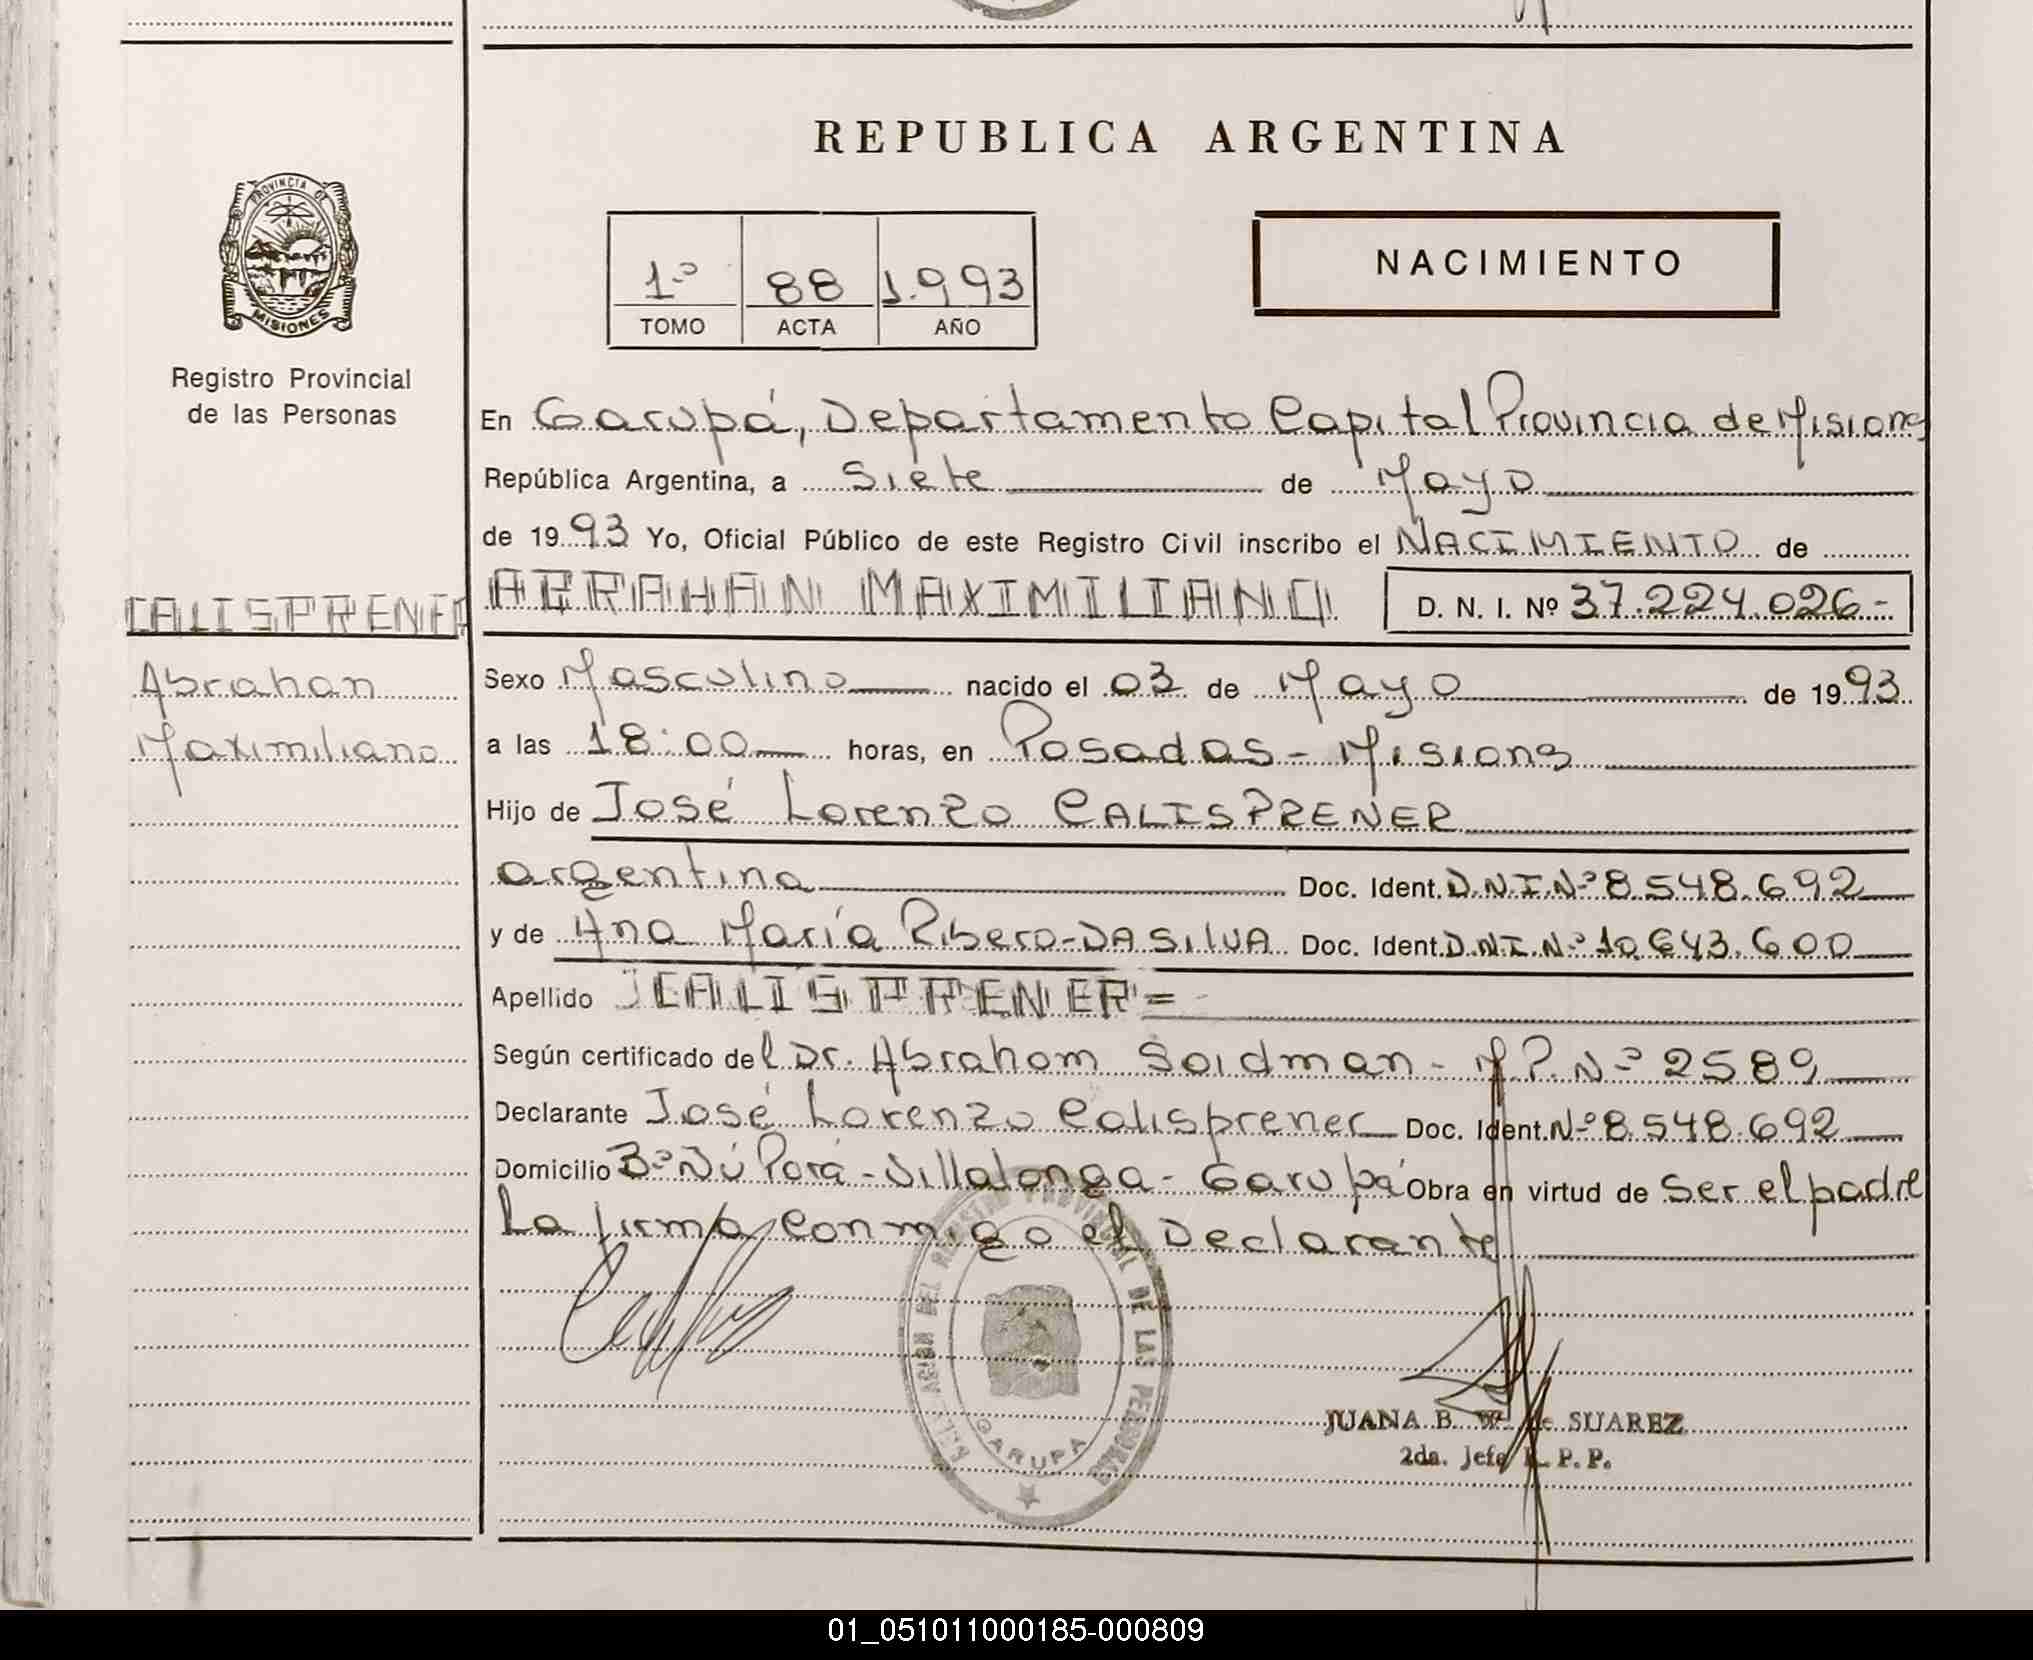 REPUBLICA ARGENTINA
PROVINCIA DE
MISIONES
Registro Provincial
de las Personas
1.º 88 1.993
TOMO ACTA AÑO
NACIMIENTO
En Garupá, Departamento Capital Provincia de Misiones
República Argentina, a Siete de Mayo
de 1993 Yo, Oficial Público de este Registro Civil inscribo el NACIMIENTO de
CALISPRENER
ABRAHAN MAXIMILIANO D. N. I. Nº 37.224.026-
Abrahan
Maximiliano
Sexo Masculino nacido el 03 de Mayo de 1993
a las 18:00 horas, en Posadas - Misiones
Hijo de José Lorenzo CALISPRENER
argentina Doc. Ident. D.N.I.Nº 8.548.692
y de Ana María Ribero-DA SILVA Doc. Ident. D.N.I.Nº 10.643.600
Apellido CALISPRENER =
Según certificado del Dr. Abraham Soidman - M.P.Nº 2589
Declarante José Lorenzo Calisprener Doc. Ident. Nº 8.548.692
Domicilio Bº Ñú Porá - Villalonga - Garupá Obra en virtud de ser el padre
La firma conmigo el Declarante
DELEGACION DEL REGISTRO PROVINCIAL DE LAS PERSONAS
GARUPA
JUANA B. de SUAREZ
2da. Jefe R. P. P.
01_051011000185-000809